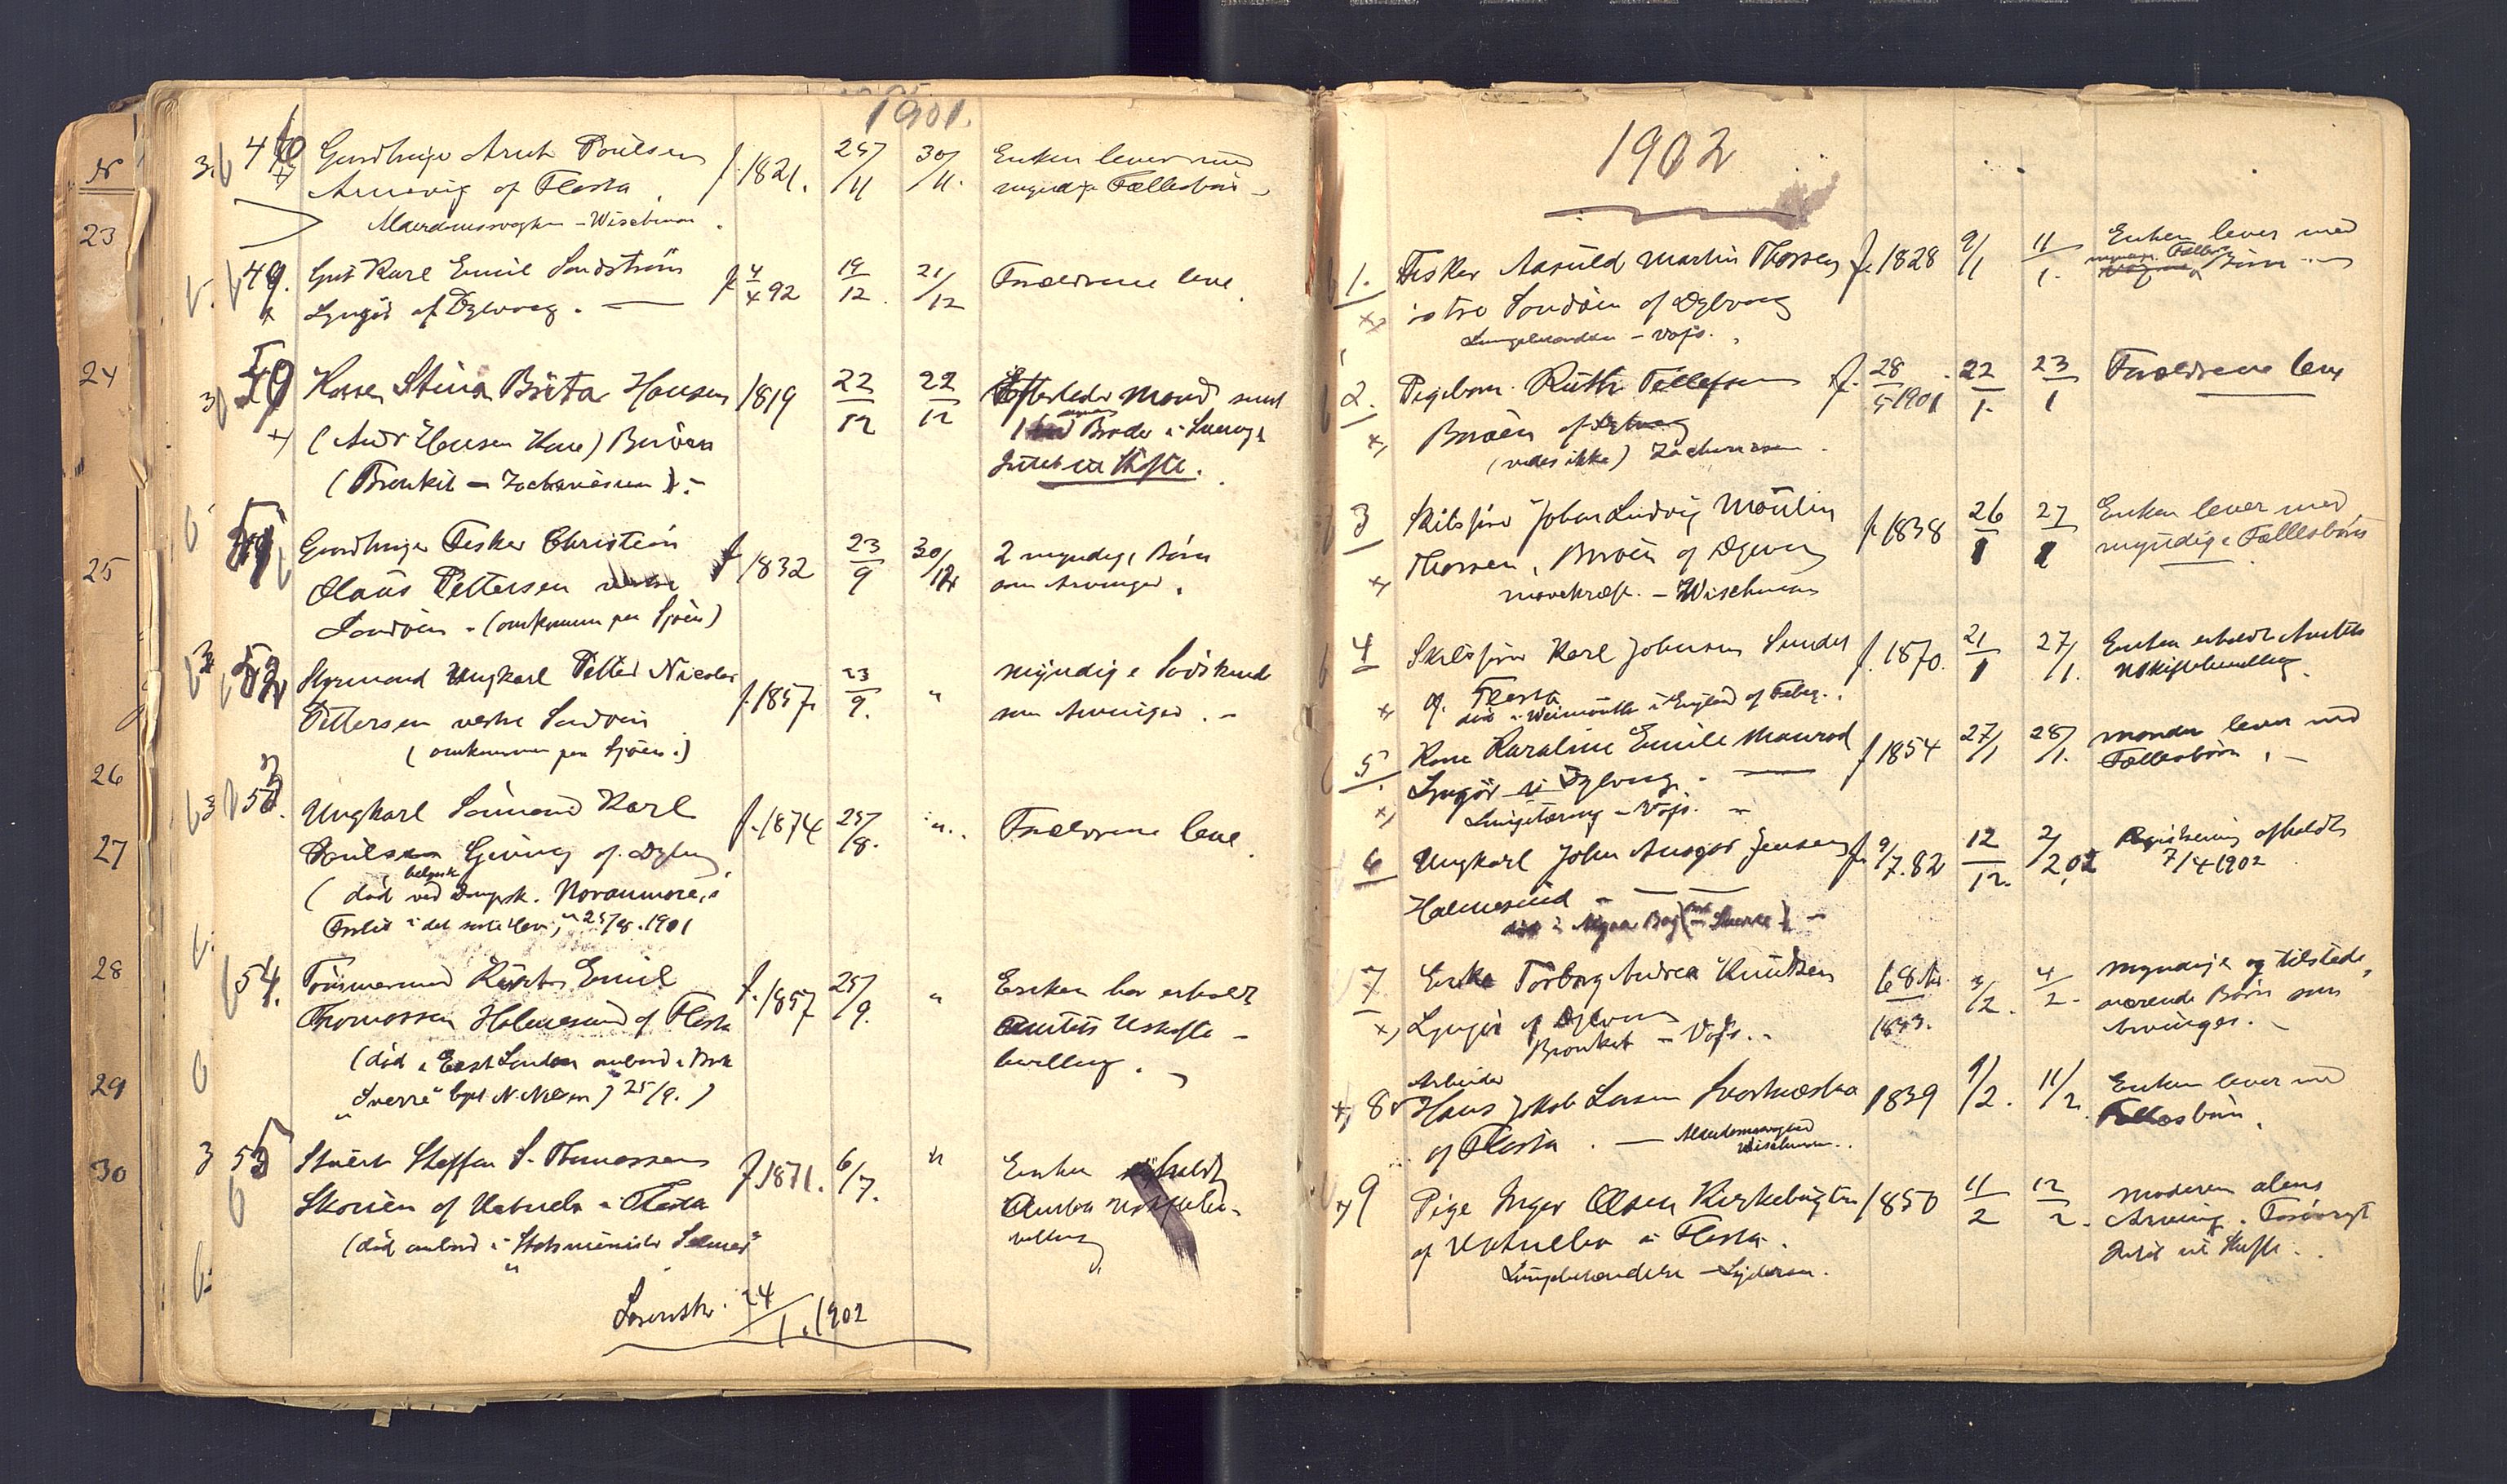 N
23
24
25
26
27
28
29
30
1901.
3. 48 Gaardbruger Arnt Poulsen f. 1821. 25/11 30/11. Enken lever med
Arnevig af Flosta myndige Fællesbørn
Alderdomssvaghed - Wischman.
49. Gut Karl Emil Sandstrøm f 4/4 92 19/12. 21/12 Forældrene leve.
Lyngør af Dybvaag. —
3 50 Kone Stina Brita Hansen 1819 22/12 22/12 Efterlader Mand samt
(Andr Hansen Kone) Borøen 1 Broder i Sverige
(Bronkit — Zachariassen). Intet til Skifte.
51 Gaardbruger Fisker Christian f 1832 23/9 30/12 2 myndige Børn
Olaus Pettersen vestre som Arvinger.
Sandøen - (omkommen paa Sjøen)
3 52 Styrmand Ungkarl Petter Nicolai f. 1857. 23/9. " myndige Sødskende
Pettersen vestre Sandøen som Arvinger. -
(omkommen paa Sjøen.)
3 53. Ungkarl Sømand Karl f. 1874 25/8. " Forældrene leve.
Poulsen Gjeving af Dybvaag
(død ved belgisk Dampsk. Noranmore's
Forlis i det sorte Hav, 25/8. 1901
54. Tømmermand Emil f. 1857 25/9. " Enken har erholdt
Thomassen Holmesund af Flosta Amtets Uskifte-
(død i East London ombord i Bark bevilling.
"Sverre" kapt N. Nilsen) 25/9.)
3 55 Stuert Steffen S. Thomassen f. 1871. 6/7. " Enken erholdt
Skoren af Vatnebo i Flosta Amtets Uskiftebe-
(død ombord i "Statsminister Selmer" villing
Sorenskr. 24/1. 1902
1902
1. Fisker Aasuld Martin Thorsen f. 1828 9/1 11/1. Enken lever med
østre Sandøen af Dybvaag myndige Fælles Børn
Lungebetændelse - Vofs.
2. Pigebarn Ruth Tellefsen f. 28/5 1901 22/1. 23/1 Forældrene leve
Borøen af Dybvaag
(vides ikke) Zachariassen.
3 Skibsfører Johan Ludvig Moulin f 1838 26/1 27/1 Enken lever med
Thorsen, Borøen af Dybvaag myndige Fællesbørn
Mavekræft. - Wischman
4 Skibsfører Karl Johansen Sundet f. 1870. 21/1 27/1. Enken erholdt Amtets
af Flosta Uskiftebevilling.
død i Weimouth i England af Feber.
5. Kone Karoline Emilie Maurod f 1854 27/1 28/1. Manden lever med
Lyngør i Dybvaag. — Fællesbørn. -
Lungetæring - Vofs.
6 Ungkarl John Ansgar Jensen f. 9/7. 82 12/12. 2/2 02 Registrering afholdt
Holmesund 7/4 1902
død i Algoa Bay Sverre
7 Enke Torborg Andrea Knudsen 68 Aar 3/2. 4/2. myndige og tilstede-
Lyngør af Dybvaag 1833. værende Børn som
Bronkit - Vofs. - Arvinger. -
8 Arbeider
Hans Jakob Larsen Svartnæsbo 1839 9/2. 11/2. Enken lever med
af Flosta. — Alderdomssvaghed Fællesbørn.
Wischman.
9 Pige Inger Olsen Kirkebugten 1850 11/2 12/2. Moderen alene
af Vatnebo i Flosta. Arving. Forøvrigt
Lungebetændelse - Lyderson. Intet til Skifte.